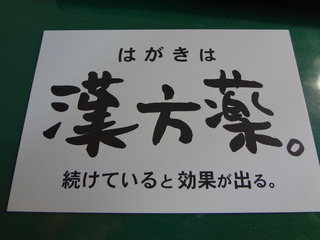 はがきは
漢方薬。
続けていると効果が出る。